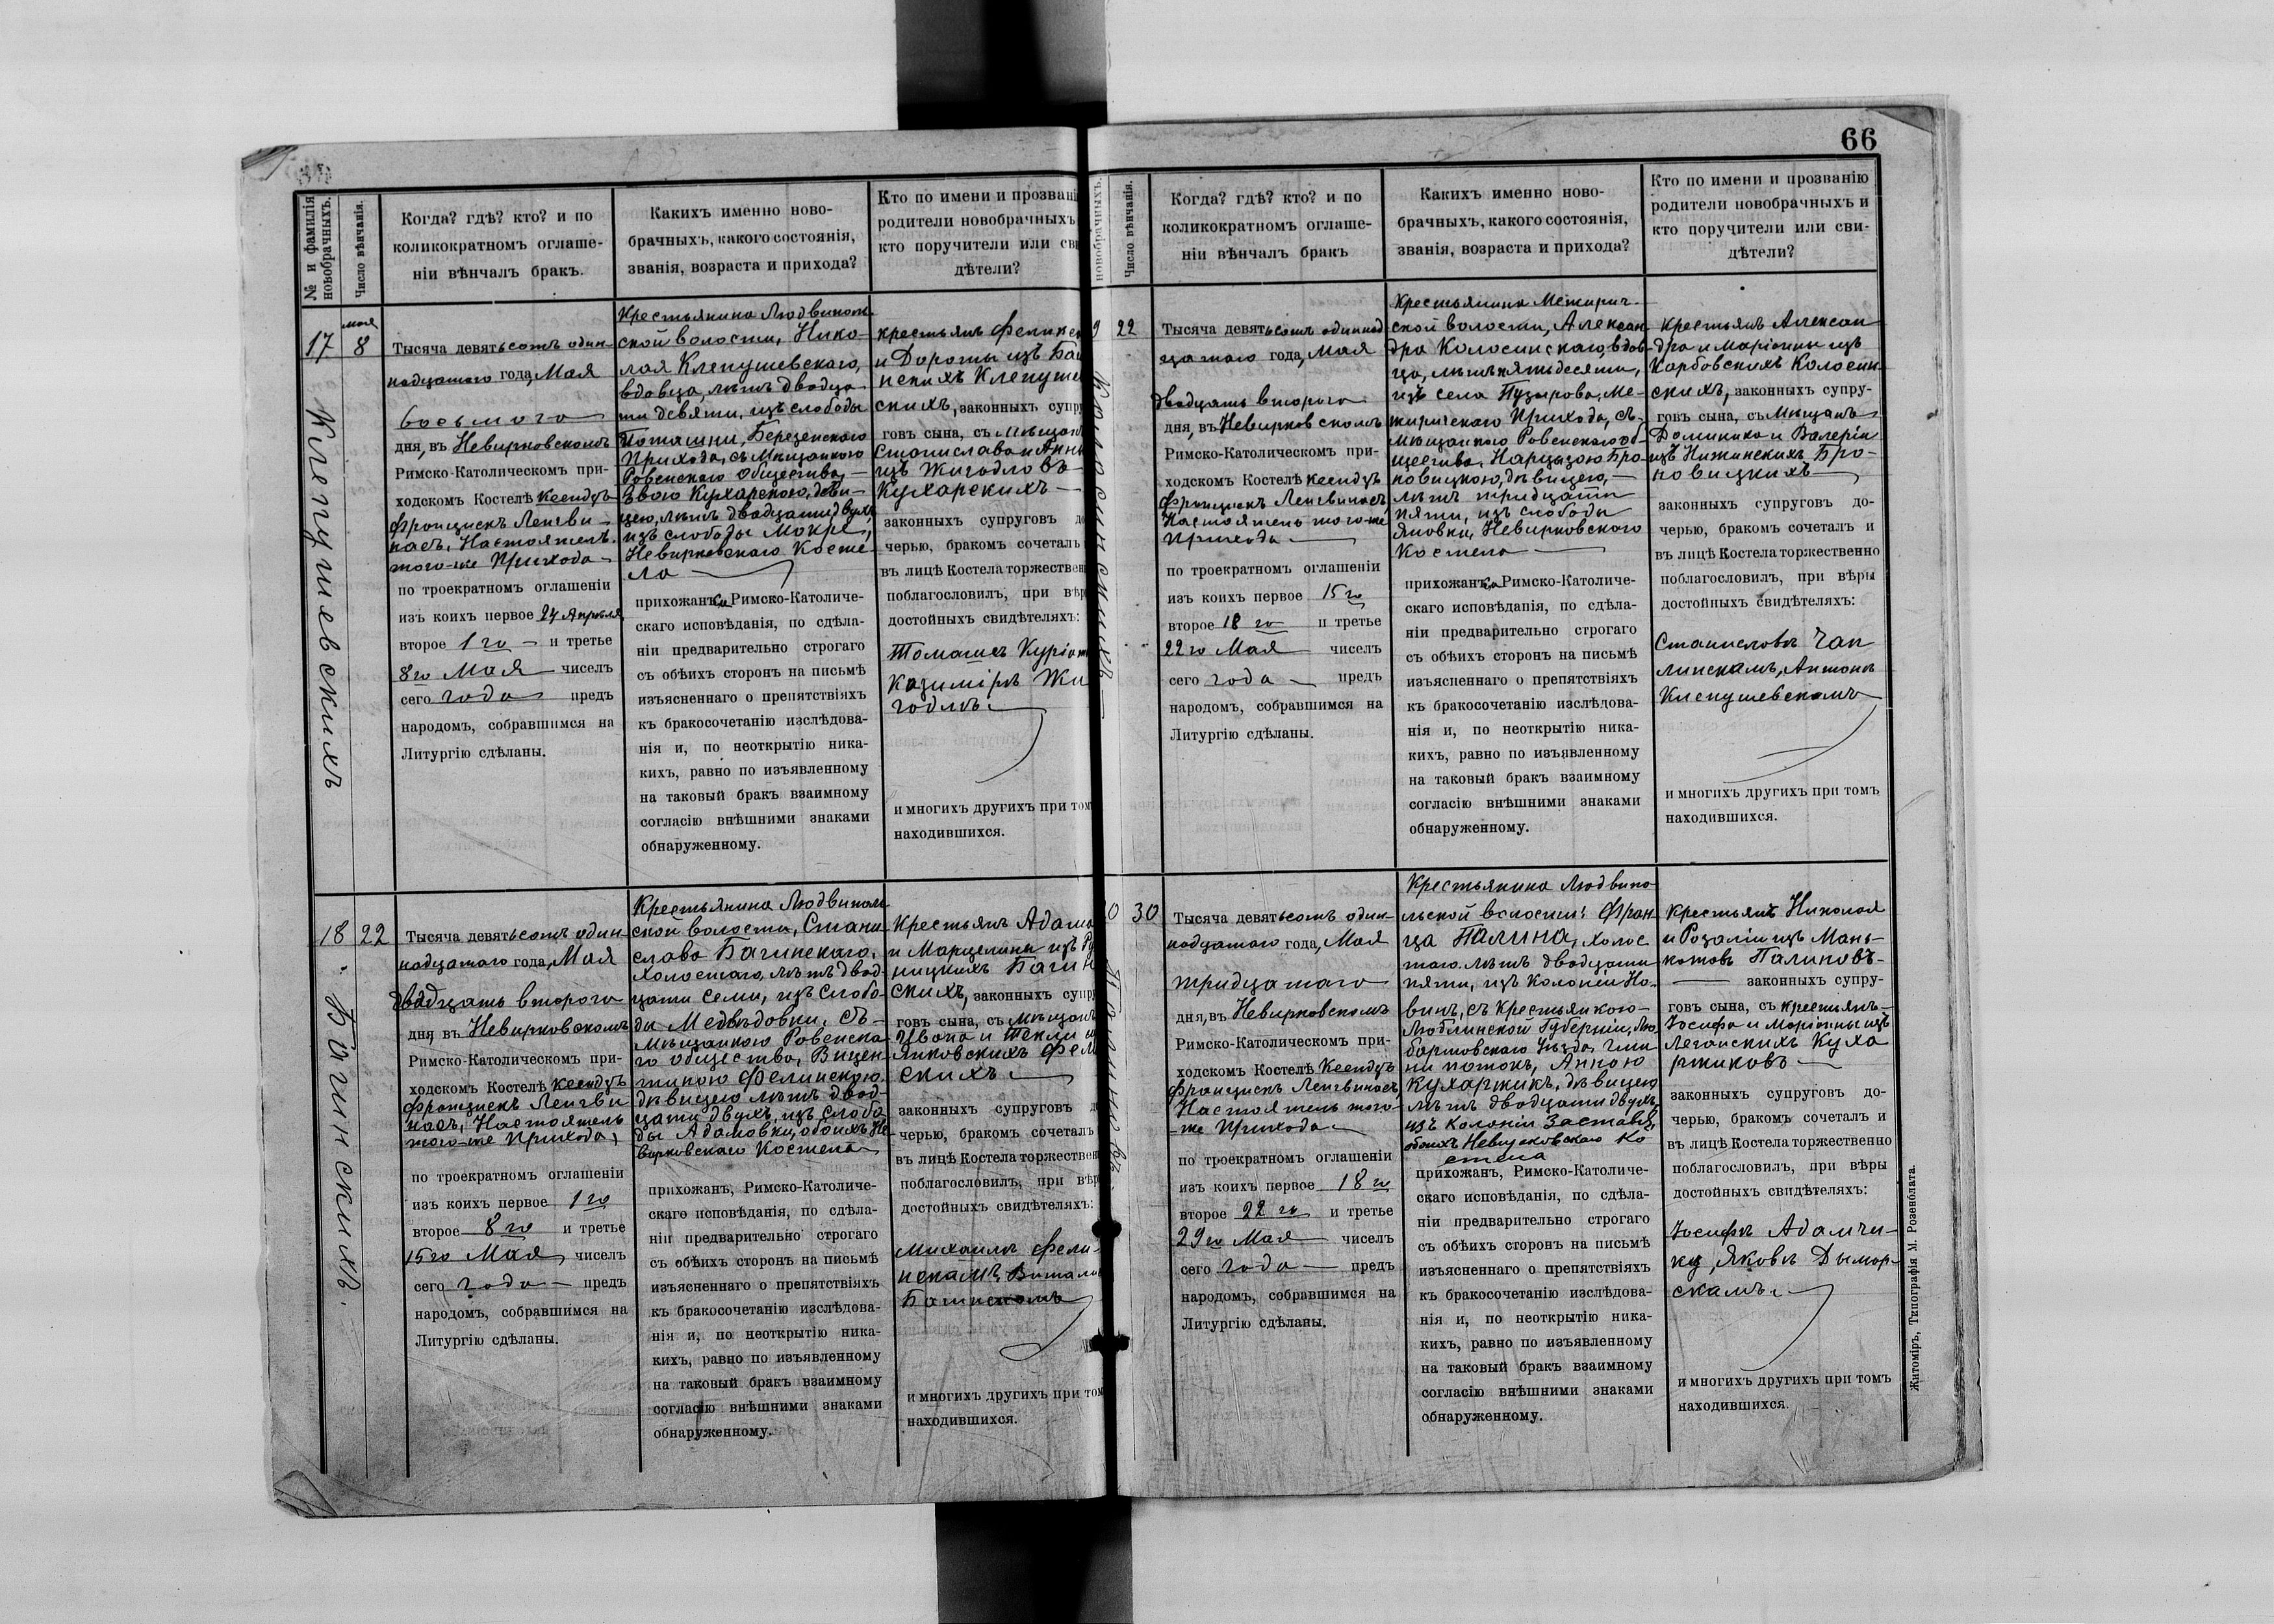 66
№ и фамилія новобрачныхъ.
Число вѣнчанія.
Когда? гдѣ? кто? и по
коликократномъ оглаше-
ніи вѣнчалъ бракъ.
Какихъ именно ново-
брачныхъ, какого состоянія,
званія, возраста и прихода?
Кто по имени и прозвані
родители новобрачныхъ
кто поручители или св
дѣтели?
17
мая
8
Клепушевскихъ
Тысяча девятьсотъ один-
надцатаго года, Мая
восьмого
дня, въ Невирковскомъ
Римско-Католическомъ при-
ходскомъ Костелѣ Ксендзъ
Францискъ Ленгви-
насъ, Настоятель
того-же Прихода
по троекратномъ оглашеніи
изъ коихъ первое 24 Апрѣля
второе 1го и третье
8го Мая чиселъ
сего года предъ
народомъ, собравшимся на
Литургію сдѣланы.
Крестьянина Людвипол-
ской волости, Нико-
лая Клепушевскаго,
вдовца, лѣтъ двадца-
ти девяти, изъ слободы
Поташни, Березенскаго
Прихода, съ Мѣщанкою
Ровенскаго Общества,
Евою Кухарскою, дѣви-
цею, лѣтъ двадцати двухъ,
изъ слободы Мокре,
Невирковскаго Косте-
ла
прихожанъ Римско-Католиче-
скаго исповѣданія, по сдѣла-
ніи предварительно строгаго
съ обѣихъ сторонъ на письмѣ
изъясненнаго о препятствіяхъ
къ бракосочетанію изслѣдова-
нія и, по неоткрытію ника-
кихъ, равно по изъявленному
на таковый бракъ взаимному
согласію внѣшними знаками
обнаруженному.
Крестьянъ Феликса
и Дороты изъ Ба
нскихъ Клепуше
скихъ, законныхъ супру
говъ сына, съ Мѣщанъ
Станислава и Анны
изъ Жигадловъ
Кухарскихъ
законныхъ супруговъ д
черью, бракомъ сочеталъ
въ лицѣ Костела торжествен
поблагословилъ, при вѣр
достойныхъ свидѣтеляхъ:
Томашъ
Казиміръ Жи
годлъ
и многихъ другихъ при том
находившихся.
18
22
Багинскихъ.
Тысяча девятьсотъ один-
надцатаго года, Мая
двадцать второго
дня, въ Невирковскомъ
Римско-Католическомъ при-
ходскомъ Костелѣ Ксендзъ
Францискъ Ленгви
насъ, Настоятель
того-же Прихода,
по троекратномъ оглашеніи
изъ коихъ первое 1го
второе 8го и третье
15го Мая, чиселъ
сего года предъ
народомъ, собравшимся на
Литургію сдѣланы.
Крестьянина Людвипол
ской волости, Стани
слава Багинскаго,
холостаго, лѣтъ двад-
цати семи, изъ слобо-
ды Медвѣдовки, съ
Мѣщанкою Ровенска-
го общества, Вицен-
тиною Фелинскою,
дѣвицею лѣтъ двад-
цати двухъ, изъ слобо
ды Адамовки, обоихъ Не
вирковскаго Костела
прихожанъ, Римско-Католиче-
скаго исповѣданія, по сдѣла-
ніи предварительно строгаго
съ обѣихъ сторонъ на письмѣ
изъясненнаго о препятствіяхъ
къ бракосочетанію изслѣдова-
нія и, по неоткрытію ника-
кихъ, равно по изъявленному
на таковый бракъ взаимному
согласію внѣшними знаками
обнаруженному.
Крестьянъ Адама
и Марцелины изъ
ницкихъ Багин
скихъ, законныхъ супру
говъ сына, съ Мѣщанъ
Ивана и Текли
Янковскихъ Фели
скихъ
законныхъ супруговъ д
черью, бракомъ сочеталъ
въ лицѣ Костела торжествен
поблагословилъ, при вѣр
достойныхъ свидѣтеляхъ:
Михаилъ Фели-
нскамъ, Витали
Багинскомъ
и многихъ другихъ при том
находившихся.
новобрачныхъ.
Число вѣнчанія.
Когда? гдѣ? кто? и по
коликократномъ оглаше-
ніи вѣнчалъ бракъ
Какихъ именно ново-
брачныхъ, какого состоянія,
званія, возраста и прихода?
Кто по имени и прозванію
родители новобрачныхъ и
кто поручители или сви-
дѣтели?
9
22
Колосинскихъ
Тысяча девятьсотъ одиннад
цатаго года, Мая
двадцать второго
дня, въ Невирковскомъ
Римско-Католическомъ при-
ходскомъ Костелѣ Ксендзъ
Францискъ Ленгвинасъ,
Настоятель того-же
Прихода
по троекратномъ оглашеніи
изъ коихъ первое 15го
второе 18го и третье
22го Мая чиселъ
сего года предъ
народомъ, собравшимся на
Литургію сдѣланы.
Крестьянина Межирич-
ской волости, Алексан-
дра Колосинскаго, вдов-
ца, лѣтъ пятьдесяти,
изъ села Пузырова, Ме-
жиричскаго Прихода, съ
мѣщанкою Ровенскаго об-
щества, Нарцызою Бро-
новицкою, дѣвицею,
лѣтъ тридцати
пяти, изъ слободы
Яновки, Невирковского
Костела
прихожанъ Римско-Католиче-
скаго исповѣданія, по сдѣла-
ніи предварительно строгаго
съ обѣихъ сторонъ на письмѣ
изъясненнаго о препятствіяхъ
къ бракосочетанію изслѣдова-
нія и, по неоткрытію ника-
кихъ, равно по изъявленному
на таковый бракъ взаимному
согласію внѣшними знаками
обнаруженному.
Крестьянъ Алексан
дра и Маріанны изъ
Карбовскихъ Колосин
скихъ, законныхъ супру-
говъ сына, съ Мѣщанъ
Доминика и Валеріи
изъ Нижинскихъ Бро-
новицкихъ
законныхъ супруговъ до-
черью, бракомъ сочеталъ и
въ лицѣ Костела торжественно
поблагословилъ, при вѣры
достойныхъ свидѣтеляхъ:
Станиславъ Чап
линскамъ, Антонъ
Клепушевскомъ
и многихъ другихъ при томъ
находившихся.
0
30
Тысяча девятьсотъ один-
надцатаго года, Мая
тридцатаго
дня, въ Невирковскомъ
Римско-Католическомъ при-
ходскомъ Костелѣ Ксендзъ
Францискъ Ленгвинасъ,
Настоятель того-
-же Прихода
по троекратномъ оглашеніи
изъ коихъ первое 18го
второе 22го и третье
29го Мая чиселъ
сего года предъ
народомъ, собравшимся на
Литургію сдѣланы.
Крестьянина Людвипо
льской волости: Фран
ца Палина, холос
таго лѣтъ двадцати
пяти, изъ Колоніи Но-
винъ, съ Крестьянкою
Люблинской Губерніи, Лю
бартовскаго Уѣзда, гми
ны потокъ, Анною
Кухаржикъ, дѣвицею
лѣтъ двадцати двухъ,
изъ Колоніи Заставя,
обоихъ Невирковскаго Ко
стела
прихожанъ, Римско-Католиче-
скаго исповѣданія, по сдѣла-
ніи предварительно строгаго
съ обѣихъ сторонъ на письмѣ
изъясненнаго о препятствіяхъ
къ бракосочетанію изслѣдова-
нія и, по неоткрытію ника-
кихъ, равно по изъявленному
на таковый бракъ взаимному
согласію внѣшними знаками
обнаруженному.
Крестьянъ Николая
и Розаліи изъ Мань-
котовъ Палиновъ
законныхъ супру-
говъ сына, съ крестьянъ
Іосифа и Маріанны изъ
Леганскихъ Куха
ржиковъ
законныхъ супруговъ до-
черью, бракомъ сочеталъ и
въ лицѣ Костела торжественно
поблагословилъ, при вѣры
достойныхъ свидѣтеляхъ:
Іосифъ Адамчи-
къ, Яковъ Дымор-
скамъ
и многихъ другихъ при томъ
находившихся.
Житоміръ, Типографія М. Розенблата.